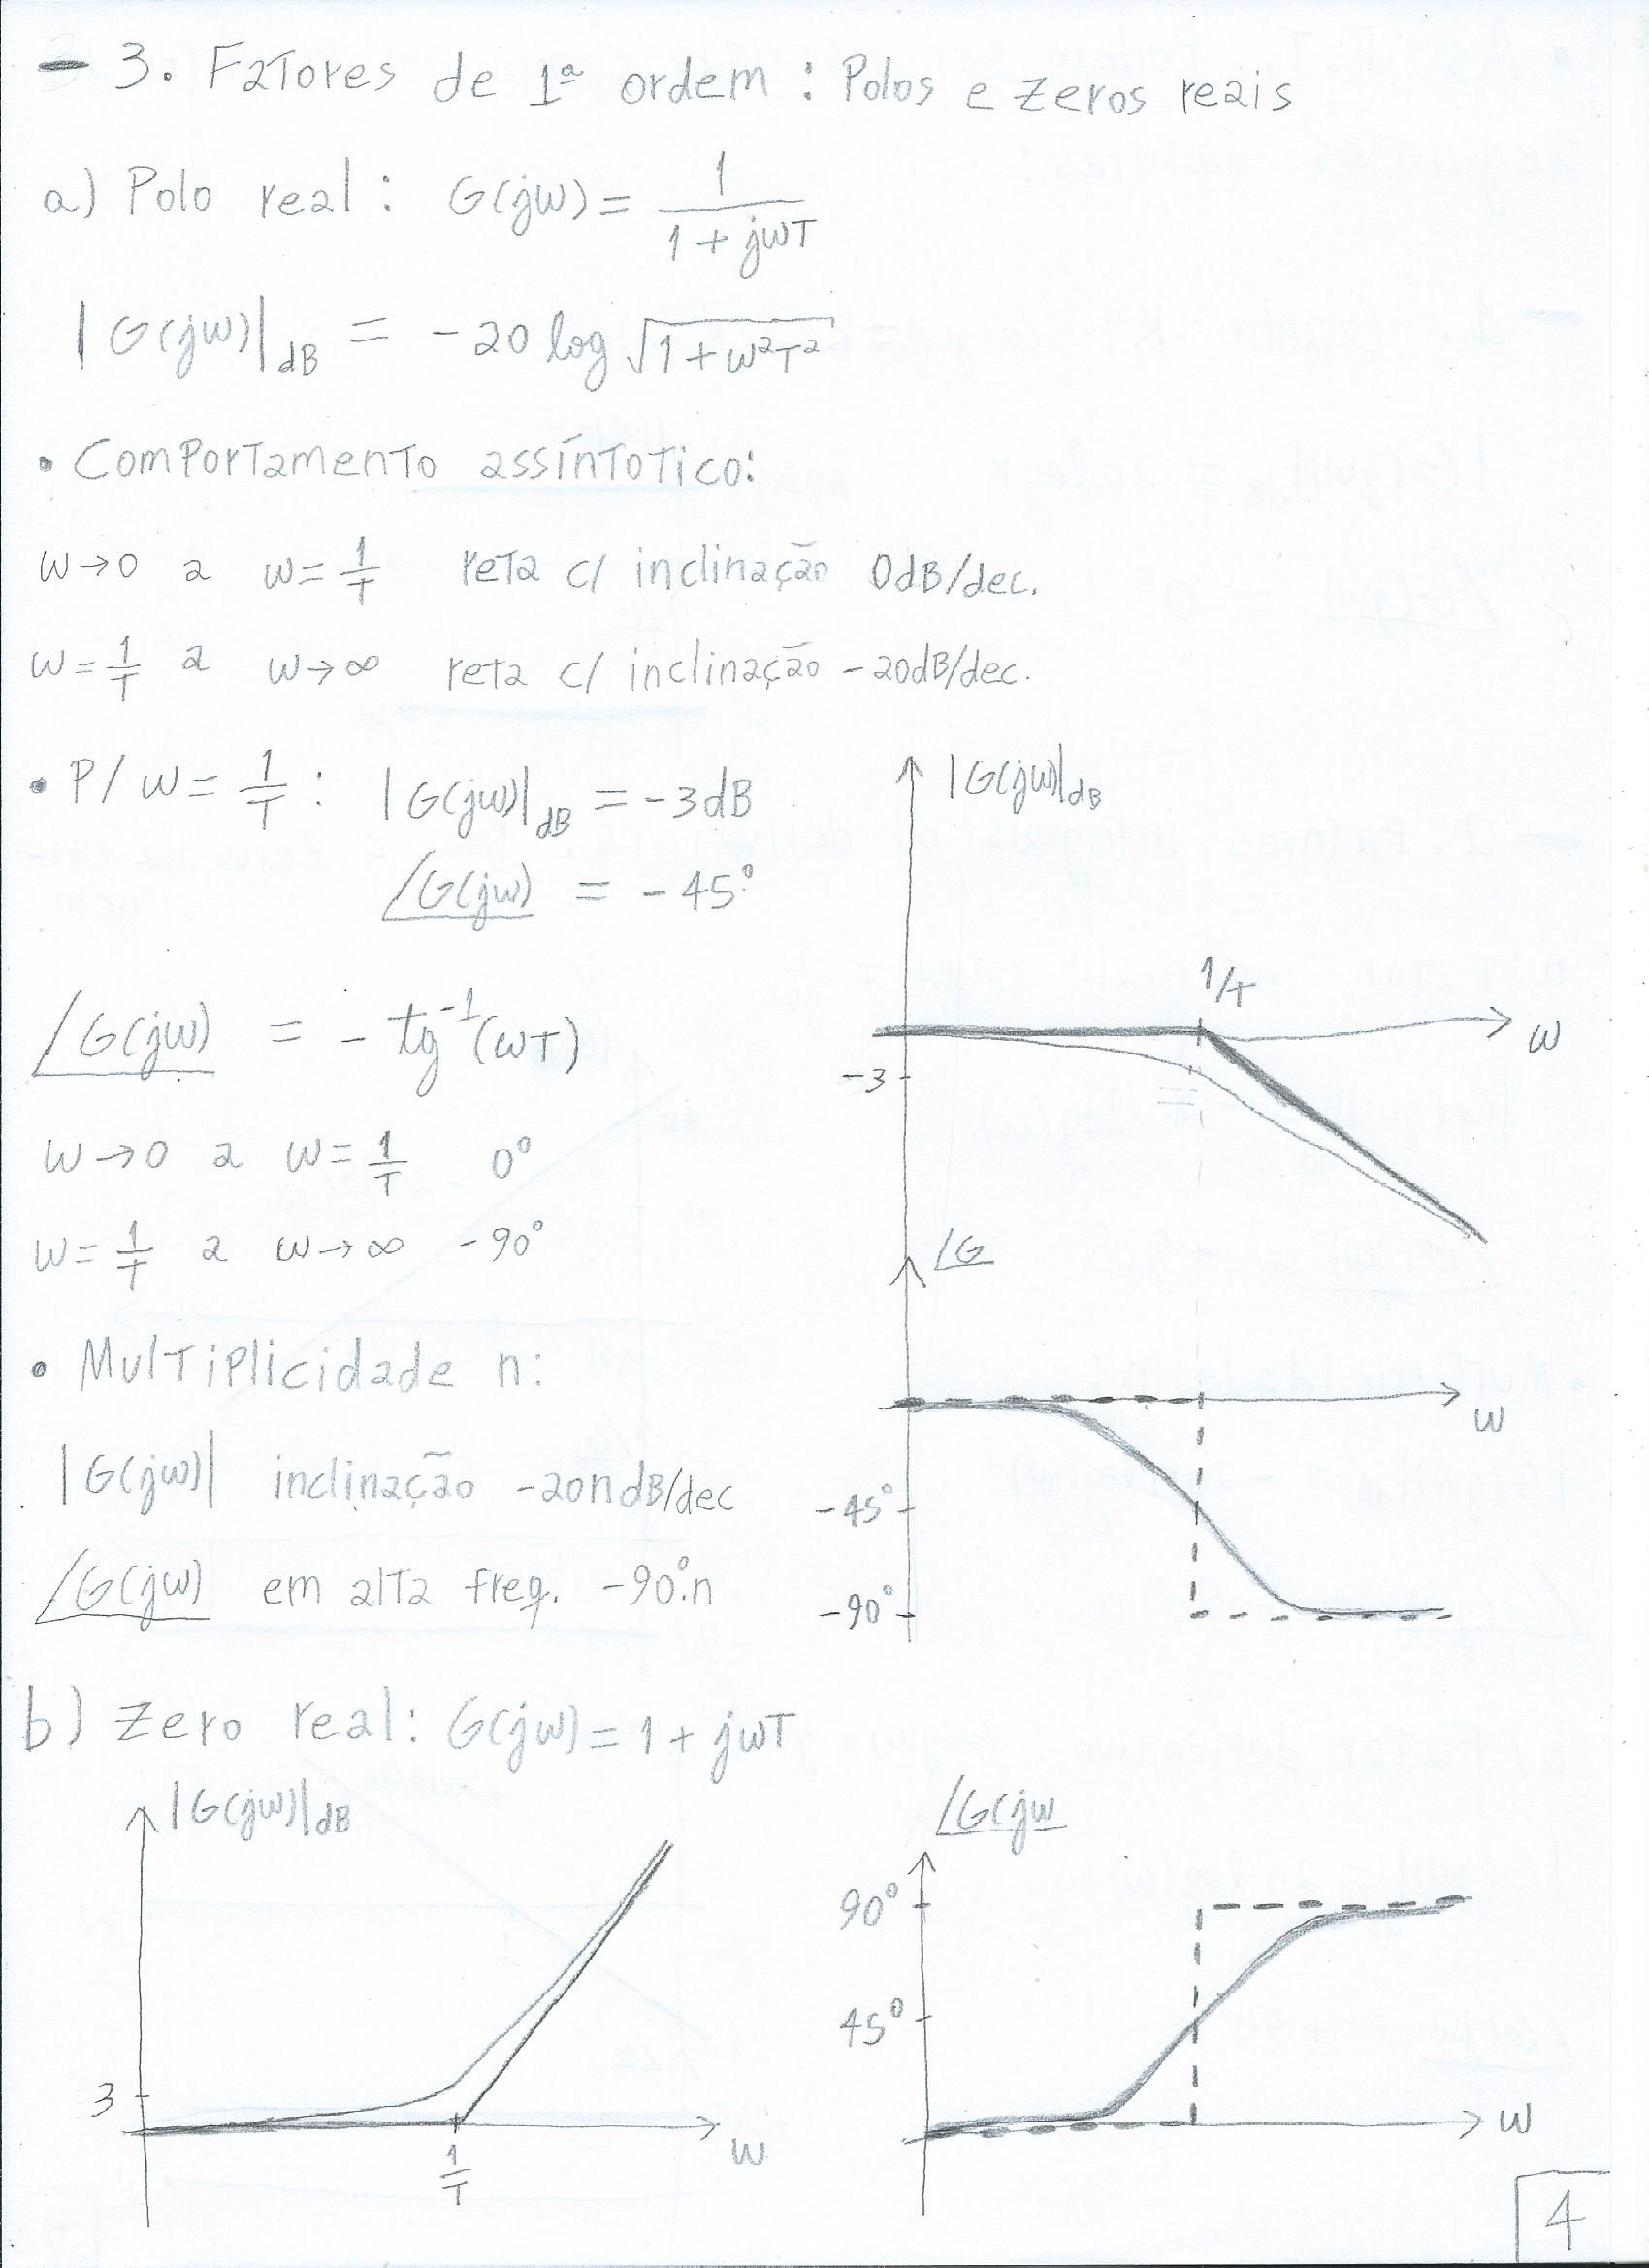 - 3. Fatores de 1ª ordem : Polos e zeros reais
a) Polo real : G(jw) = 1 / (1 + jwT)
|G(jw)|dB = -20 log √(1 + w²T²)
• Comportamento assíntotico:
w→0 a w = 1/T reta c/ inclinação 0dB/dec.
w = 1/T a w→∞ reta c/ inclinação -20dB/dec.
• P/ w = 1/T : |G(jw)|dB = -3dB
∠G(jw) = -45°
∠G(jw) = - tg⁻¹(wT)
w→0 a w = 1/T 0°
w = 1/T a w→∞ -90°
• Multiplicidade n:
|G(jw)| inclinação -20ndB/dec
∠G(jw) em alta freq. -90°.n
|G(jw)|dB
1/T
w
-3
∠G
w
-45°
-90°
b) Zero real: G(jw) = 1 + jwT
|G(jw)|dB
3
1/T
w
∠G(jw
90°
45°
w
4